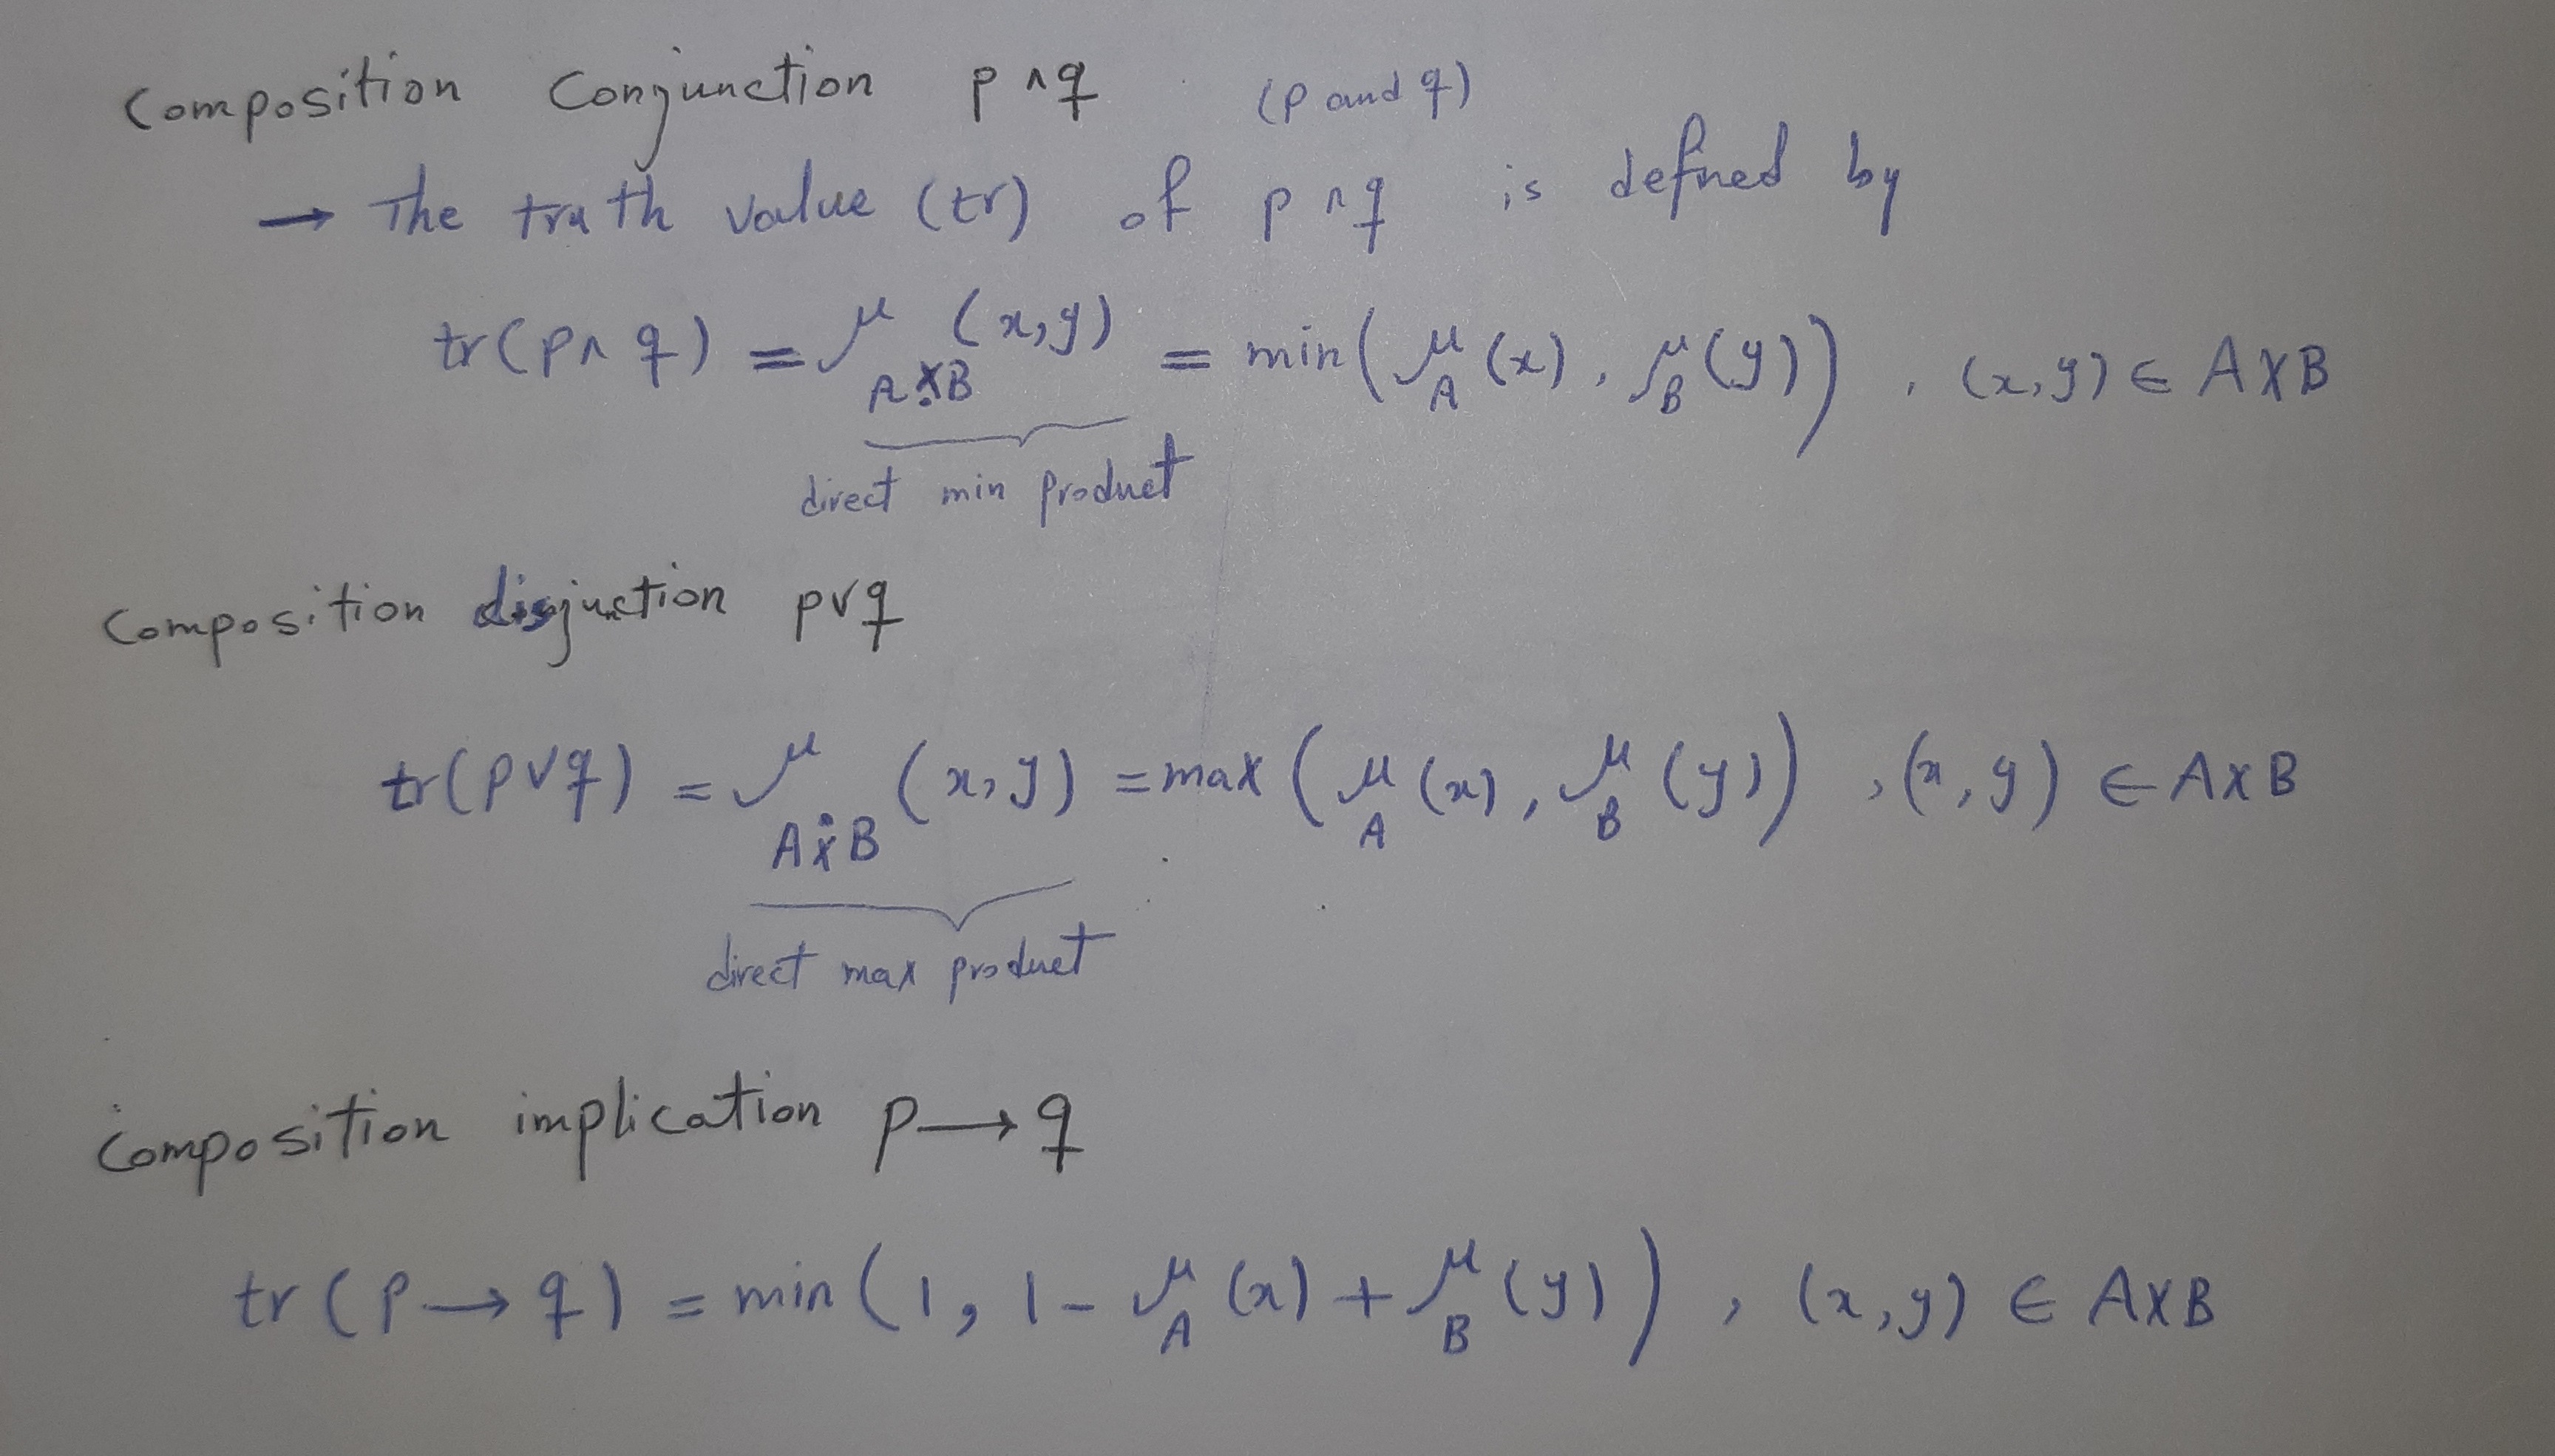 Composition Conjunction p ∧ q (p and q)
→ The truth value (tr) of p ∧ q is defined by
tr(p ∧ q) = μ_{A×̣B}(x,y) = min(μ_A(x), μ_B(y)), (x,y) ∈ A×B
direct min product
Composition disjuction p∨q
tr(p∨q) = μ_{A×̇B}(x,y) = max(μ_A(x), μ_B(y)), (x,y) ∈ A×B
direct max product
Composition implication p → q
tr(p → q) = min(1, 1 - μ_A(x) + μ_B(y)), (x,y) ∈ A×B